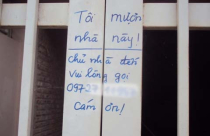 Tôi mượn
nhà này!
chủ nhà đến
vui lòng gọi
Cám ơn!